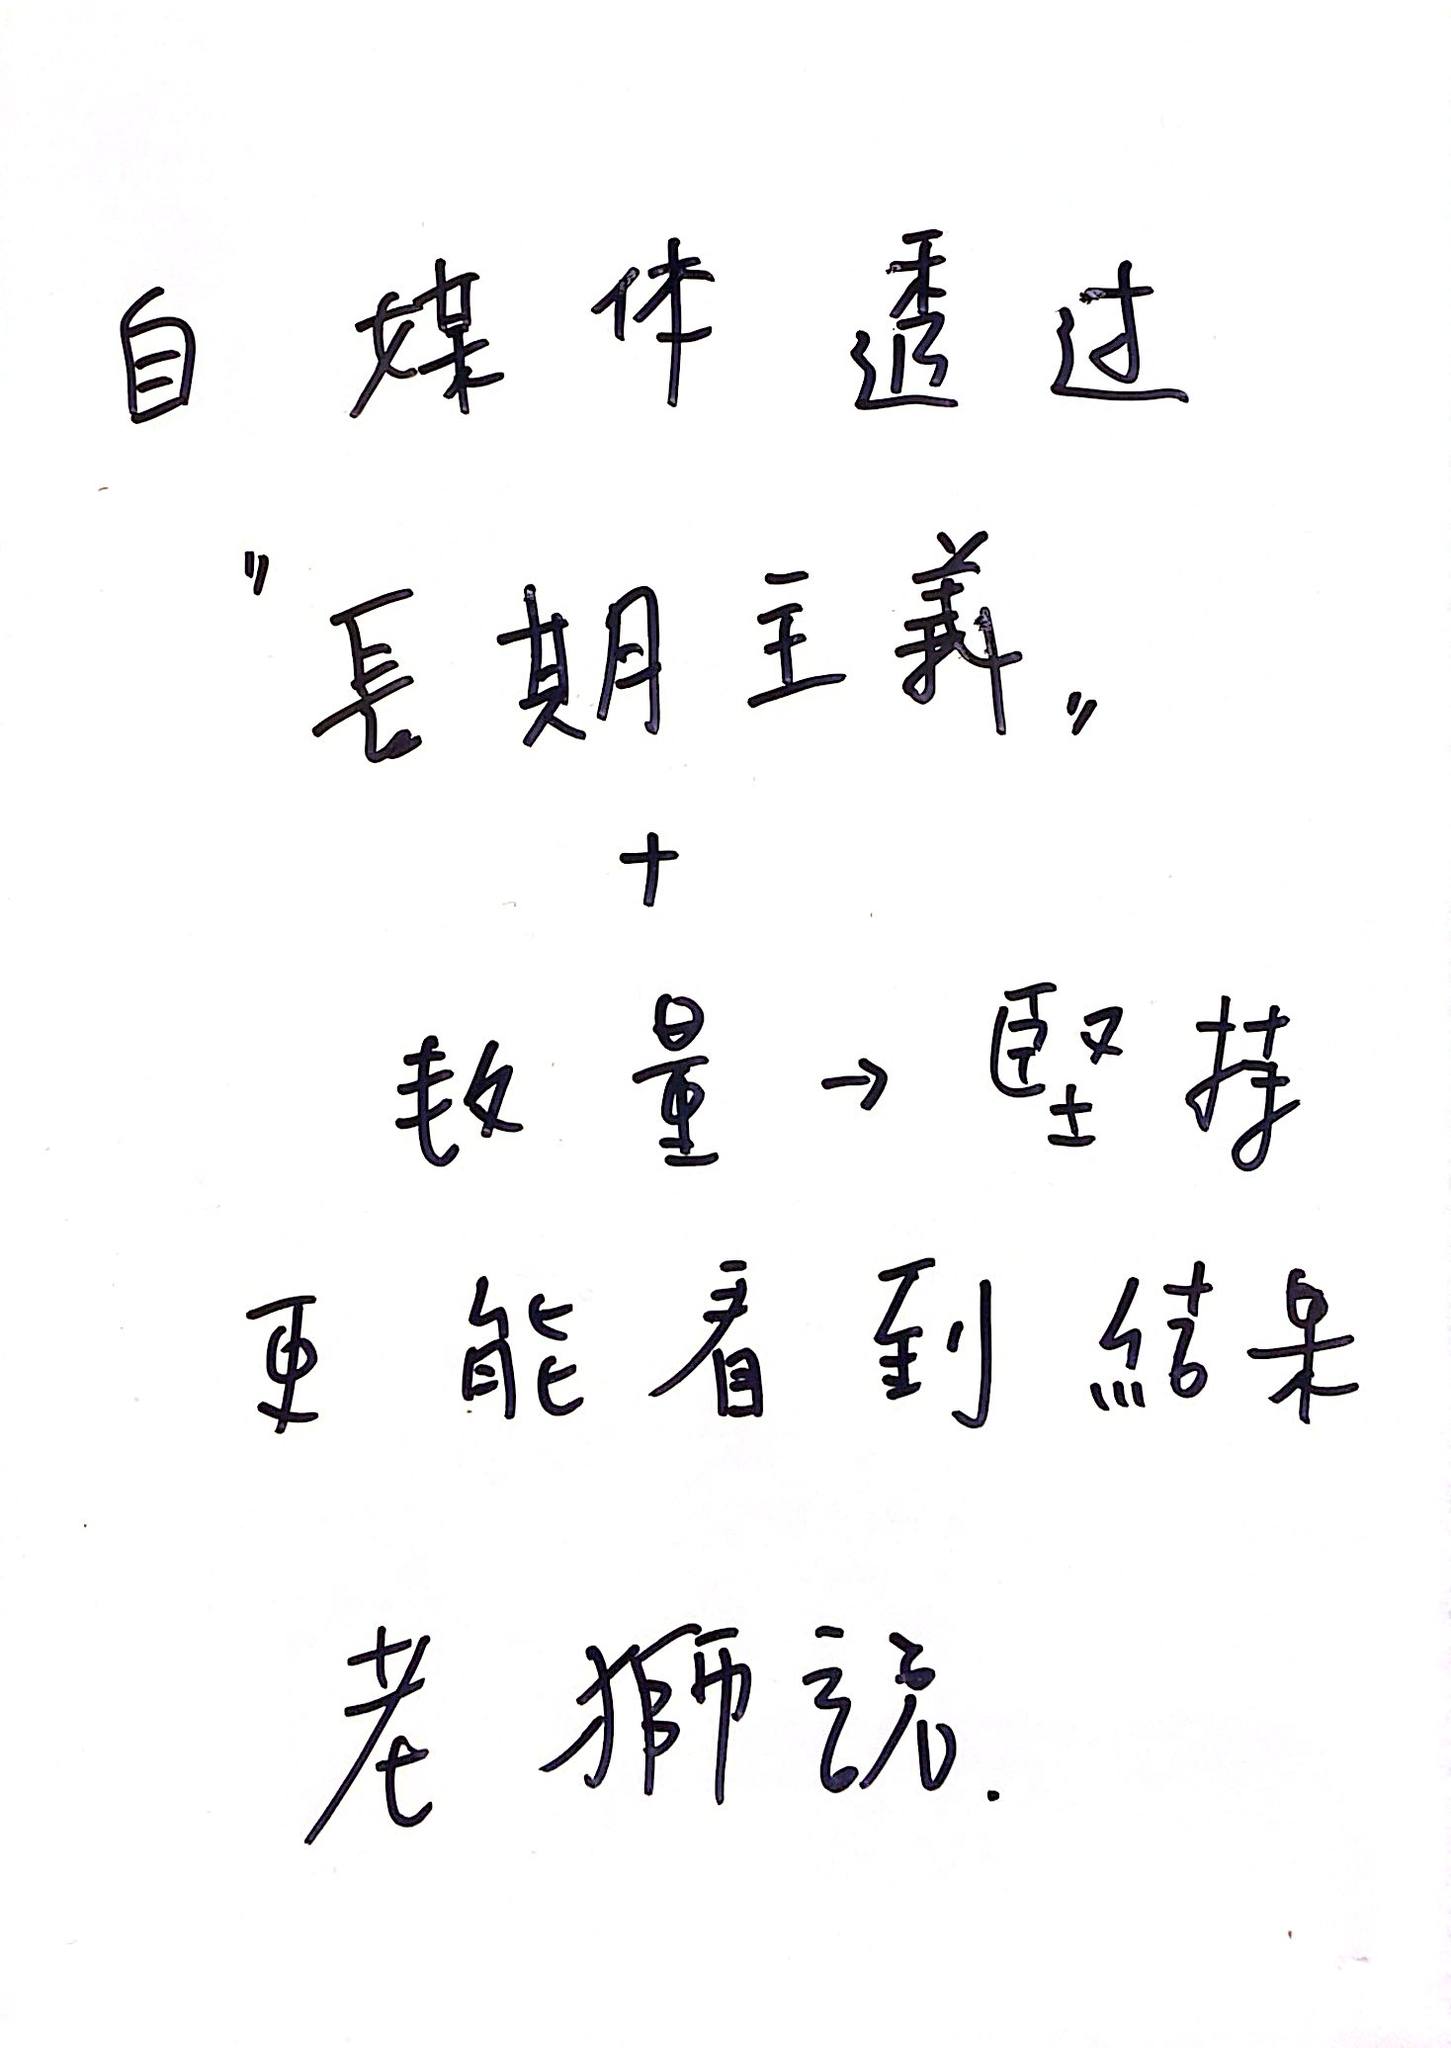 自媒体透过
"長期主義"
+
数量→堅持
更能看到結果
老獅說.